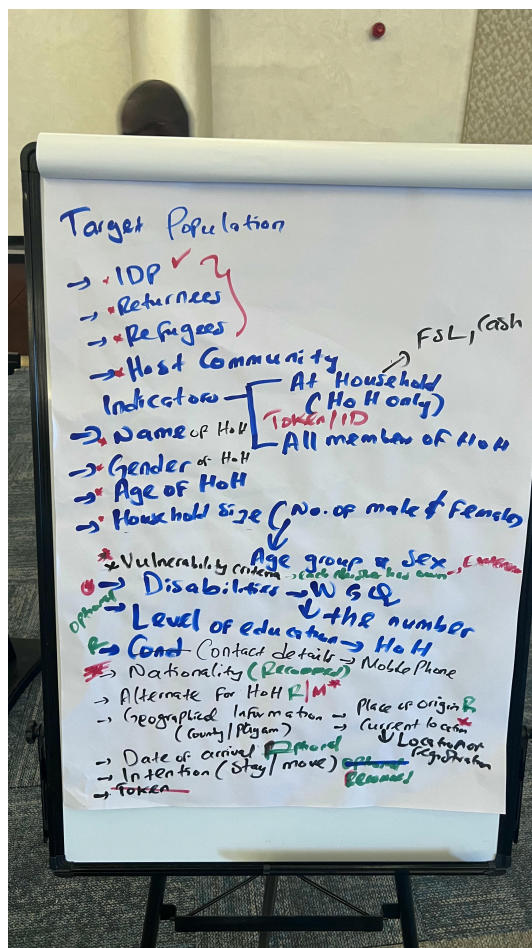 Target Population
→ * IDP ✓
→ * Returnees
→ * Refugees
→ * Host Community
FSL, Cash
Indicators
At Household
(HoH only)
Token/ID
All member of HoH
→ * Name of HoH
→ * Gender of HoH
→ * Age of HoH
→ * Household Size (No. of male & Females)
Age group & Sex
* Vulnerability criteria → each has own
→ Disabilities → WGQ
the number
optional
→ Level of education → HoH
R → Cont Contact details → Mobile Phone
* → Nationality (Recommed)
→ Alternate for HoH R/M*
→ Geographical Information → Place of origin R
(County/Payam) → Current location *
Location of registration
→ Date of arrival Optional
→ Intention (Stay/move) optional
Recommed
→ Token